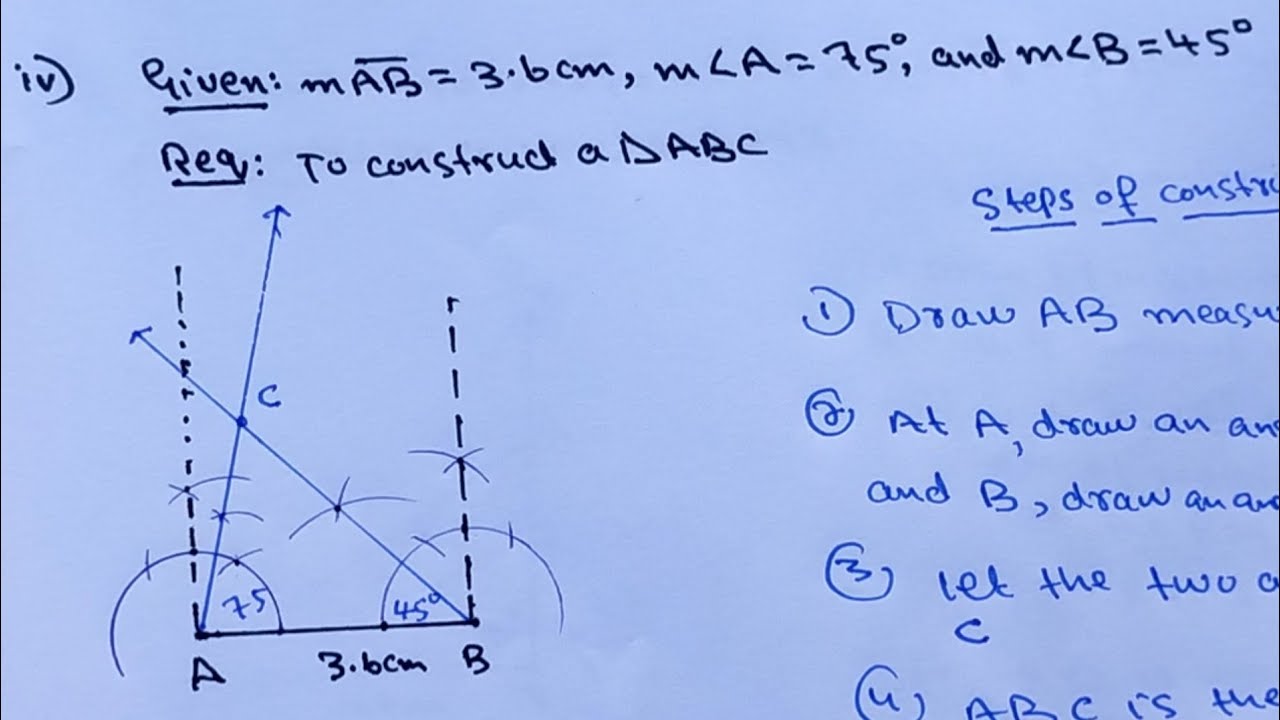 iv) Given: mAB = 3.6cm, m<A = 75°, and m<B = 45°
Req: To construct a ΔABC
Steps of constr
1) Draw AB measu
C
2) At A, draw an an
and B, draw an an
3) Let the two a
C
75
45°
A 3.6cm B
(4) ABC is the